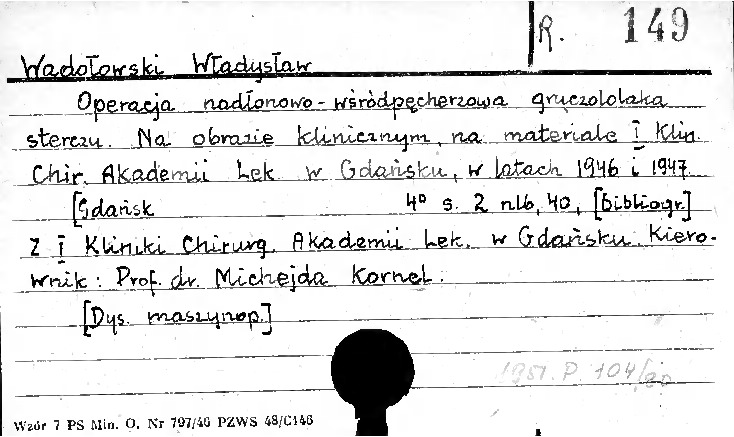 R. 149
Wądołowski Władysław
Operacja nadłonowo-wśródpęcherzowa gruczololaka
sterczu. Na obrazie klinicznym, na materiale I Klin.
Chir. Akademii Lek. w Gdańsku, w latach 1946 i 1947
[Gdańsk 4° s. 2 nlb, 40, [bibliogr.]
Z I Kliniki Chirurg. Akademii Lek. w Gdańsku. Kiero-
wnik: Prof. dr. Michejda Kornel.
[Dys. maszynop.]
1951. P. 104/80
Wzór 7 PS Min. O. Nr 797/46 PZWS 48/C146